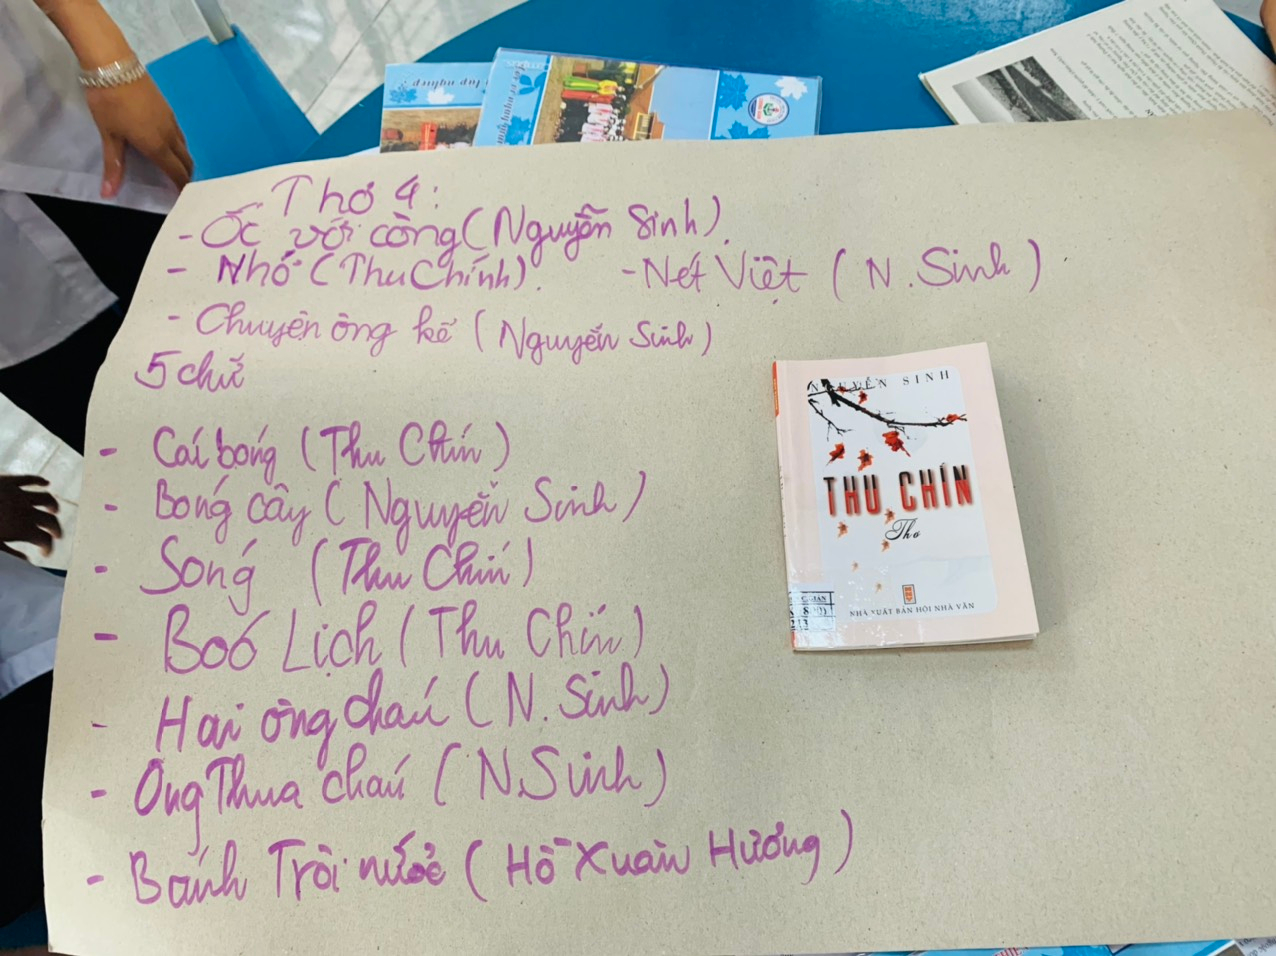 Thơ 4:
- Ốc với còng (Nguyễn Sinh).
- Nhớ (Thu Chính). - Nét Việt (N. Sinh)
- Chuyện ông kể (Nguyễn Sinh)
5 chữ
- Cái bóng (Thu Chín)
- Bóng cây (Nguyễn Sinh)
- Sóng (Thu Chín)
- Boó Lịch (Thu Chín)
- Hai ông cháu (N. Sinh)
- Ông Thua cháu (N. Sinh)
- Bánh Trôi nước (Hồ Xuân Hương)
NGUYỄN SINH
THU CHÍN
Thơ
NHÀ XUẤT BẢN HỘI NHÀ VĂN